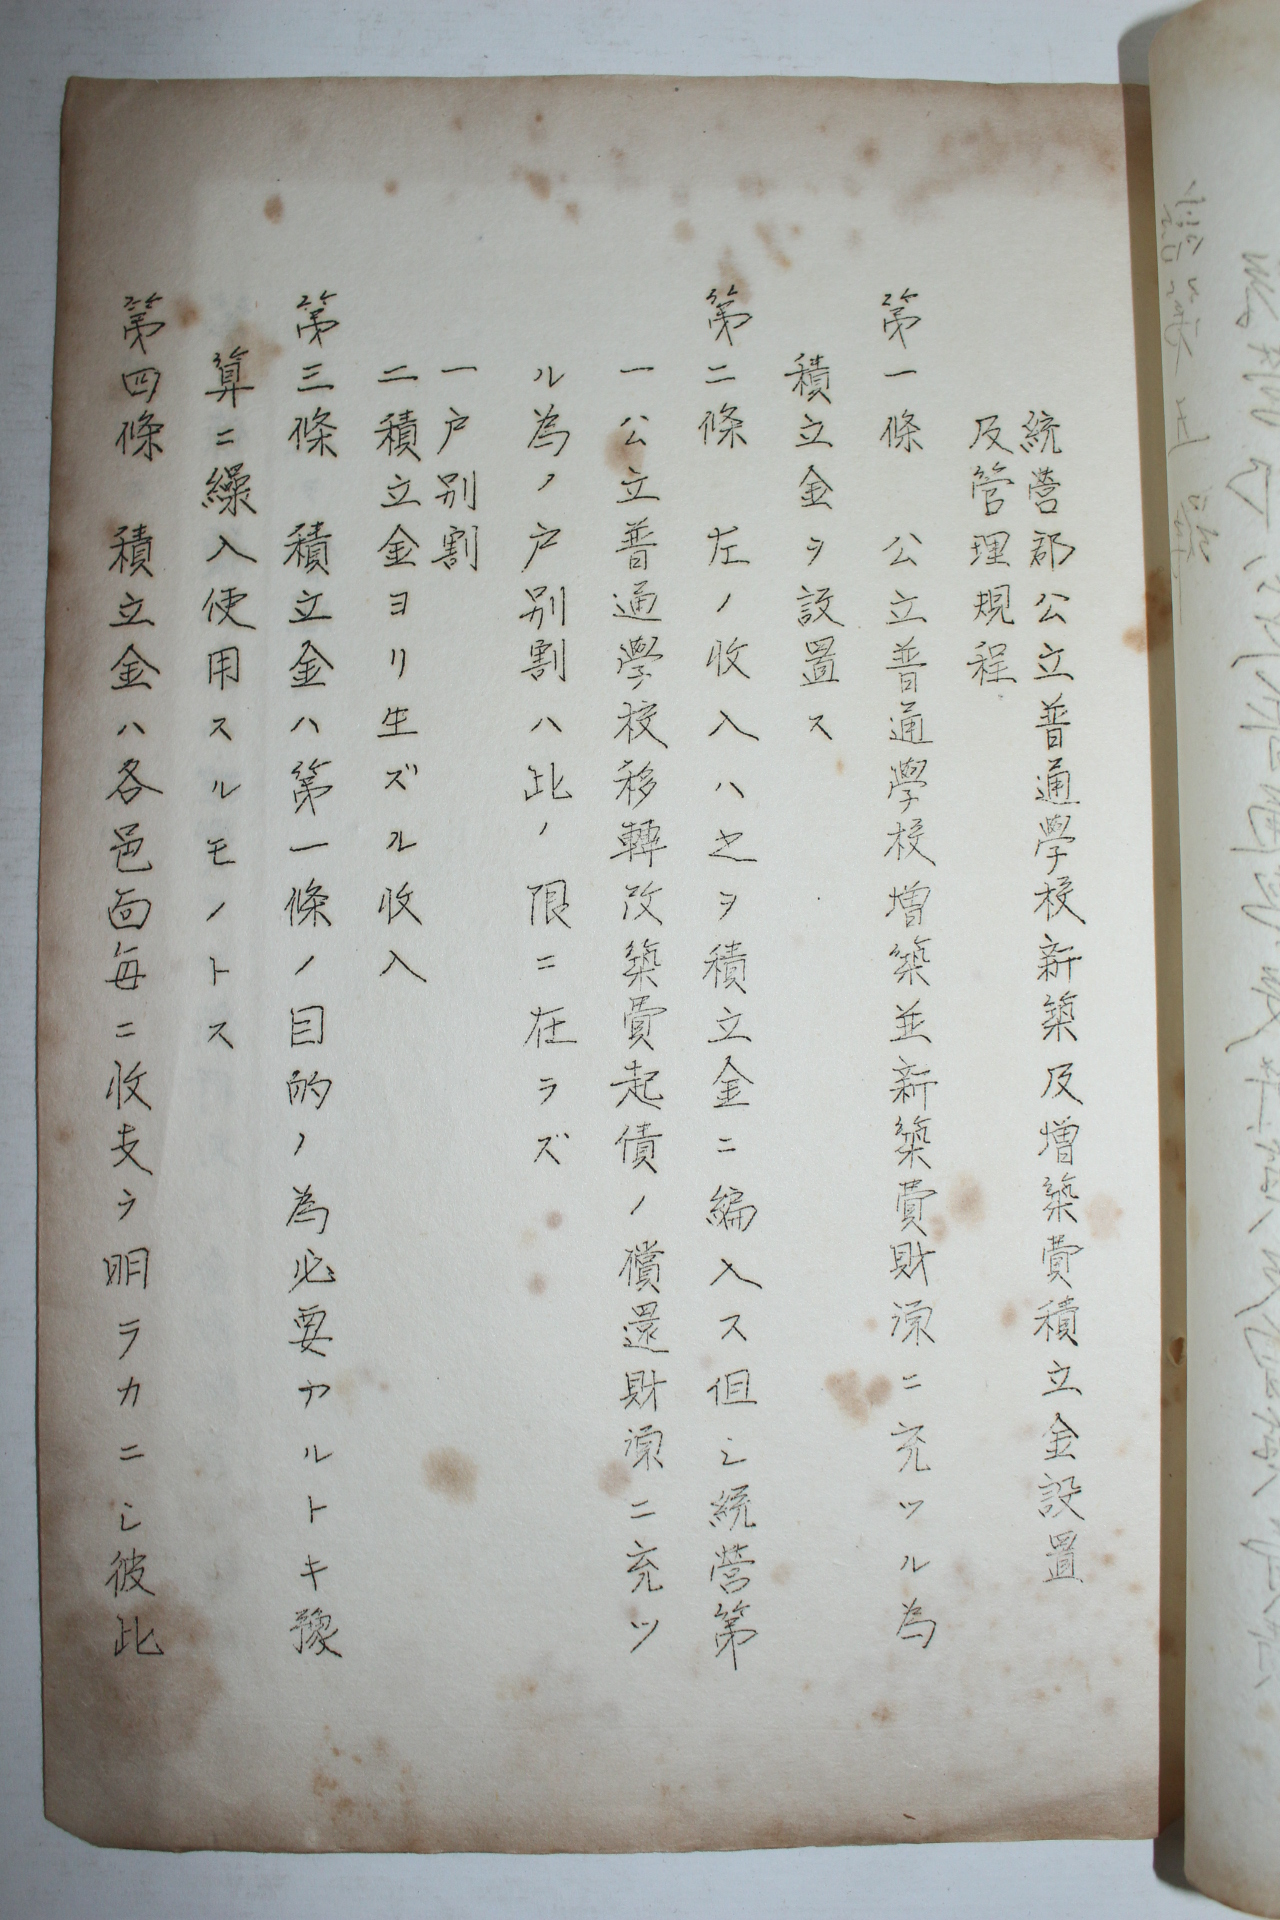 統営郡公立普通學校新築及増築費積立金設置
及管理規程
第一條　公立普通學校増築並新築費財源ニ充ツル為
積立金ヲ設置ス
第二條　左ノ收入ハ之ヲ積立金ニ編入ス但シ統営第
一公立普通學校移轉改築費起債ノ償還財源ニ充ツ
ル為ノ戸別割ハ此ノ限ニ在ラズ
一戸別割
二積立金ヨリ生ズル收入
第三條　積立金ハ第一條ノ目的ノ為必要アルトキ豫
算ニ繰入使用スルモノトス
第四條　積立金ハ各邑面毎ニ收支ヲ明ラカニシ彼此